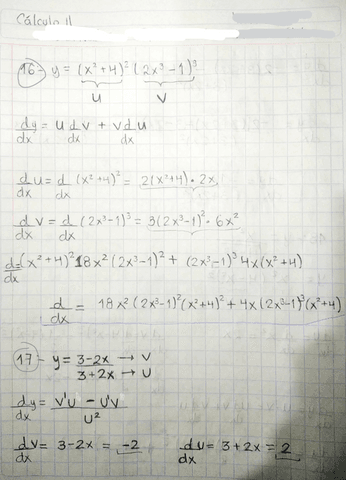 Cálculo 11
16- y = (x²+4)² (2x³-1)³
u v
dy/dx = u d/dx v + v d/dx u
d/dx u = d/dx (x²+4)² = 2(x²+4)·2x
d/dx v = d/dx (2x³-1)³ = 3(2x³-1)²·6x²
d/dx = (x²+4)² 18x² (2x³-1)² + (2x³-1)³ 4x(x²+4)
d/dx = 18x² (2x³-1)² (x²+4)² + 4x (2x³-1)³ (x²+4)
17- y = 3-2x → v / 3+2x → u
dy/dx = v'u - u'v / u²
dv/dx = 3-2x = -2 du/dx = 3+2x = 2